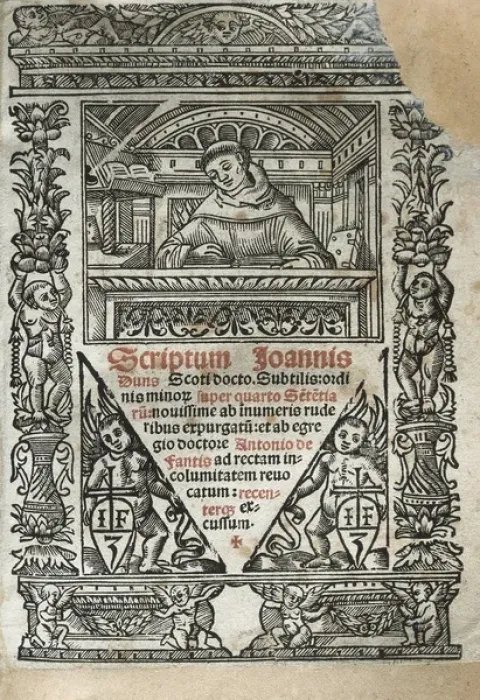 Scriptum Joannis
Duns Scoti docto. Subtilis: ordi
nis minoꝝ super quarto Sētētia
rū: nouissime ab īnumeris rude
ribus expurgatū: et ab egre
gio doctore Antonio de
Fantis ad rectam in-
columitatem reuo
catum: recen-
terqꝫ ex-
cussum.
I F
I F